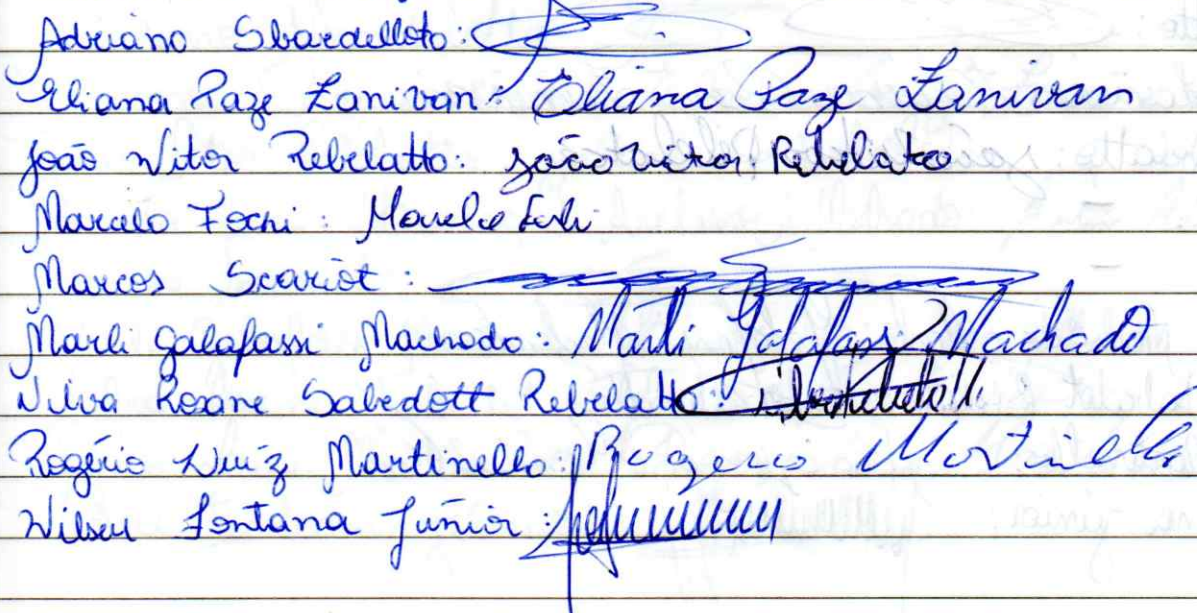 Adriano Sbardelloto:
Eliana Paze Zanivan: Eliana Paze Zanivan
João Vitor Rebelatto: João Vitor Rebelatto
Marcelo Fochi: Marcelo Fochi
Marcos Scariot:
Marli Galafassi Machado: Marli Galafassi Machado
Nilva Rosane Sabedott Rebelatto:
Rogério Luiz Martinello: Rogerio Martinello
Wilseu Fontana Júnior: